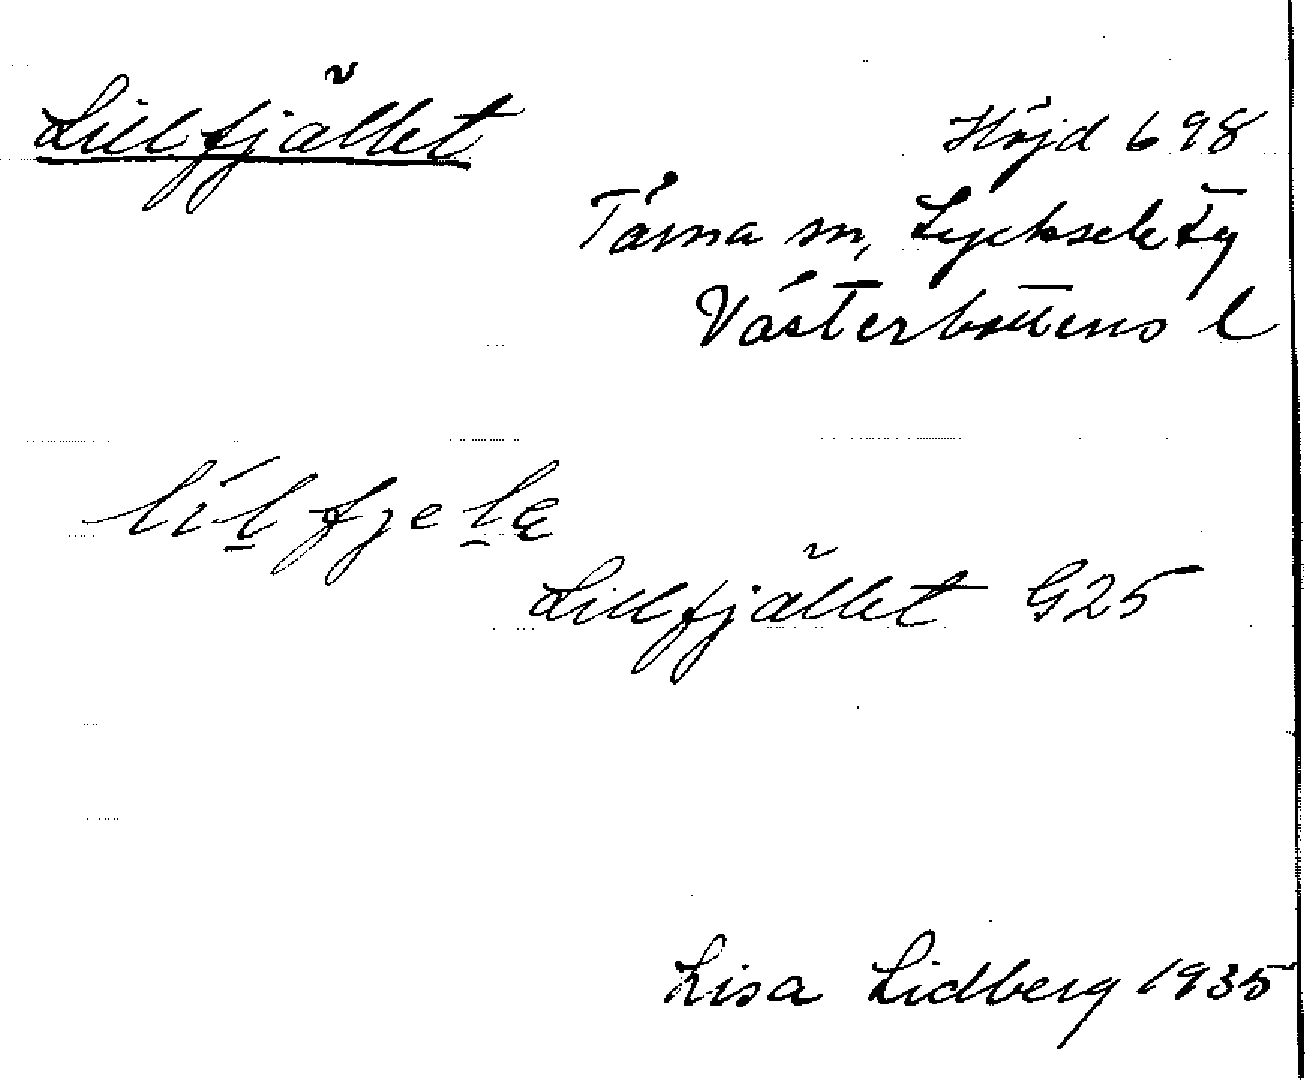 Lillfjället
Höjd 698
Tärna sn, Lycksele Tg
Västerbottens l
líl̠fjel̠ę
Lillfjället G25
Lisa Lidberg 1935